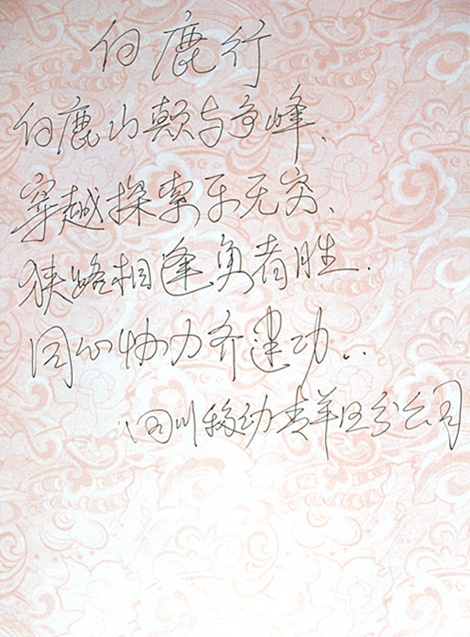 白鹿行
白鹿山颠与争峰、
穿越探索乐无穷、
狭路相逢勇者胜、
同心协力齐建功..
四川移动青羊区分公司